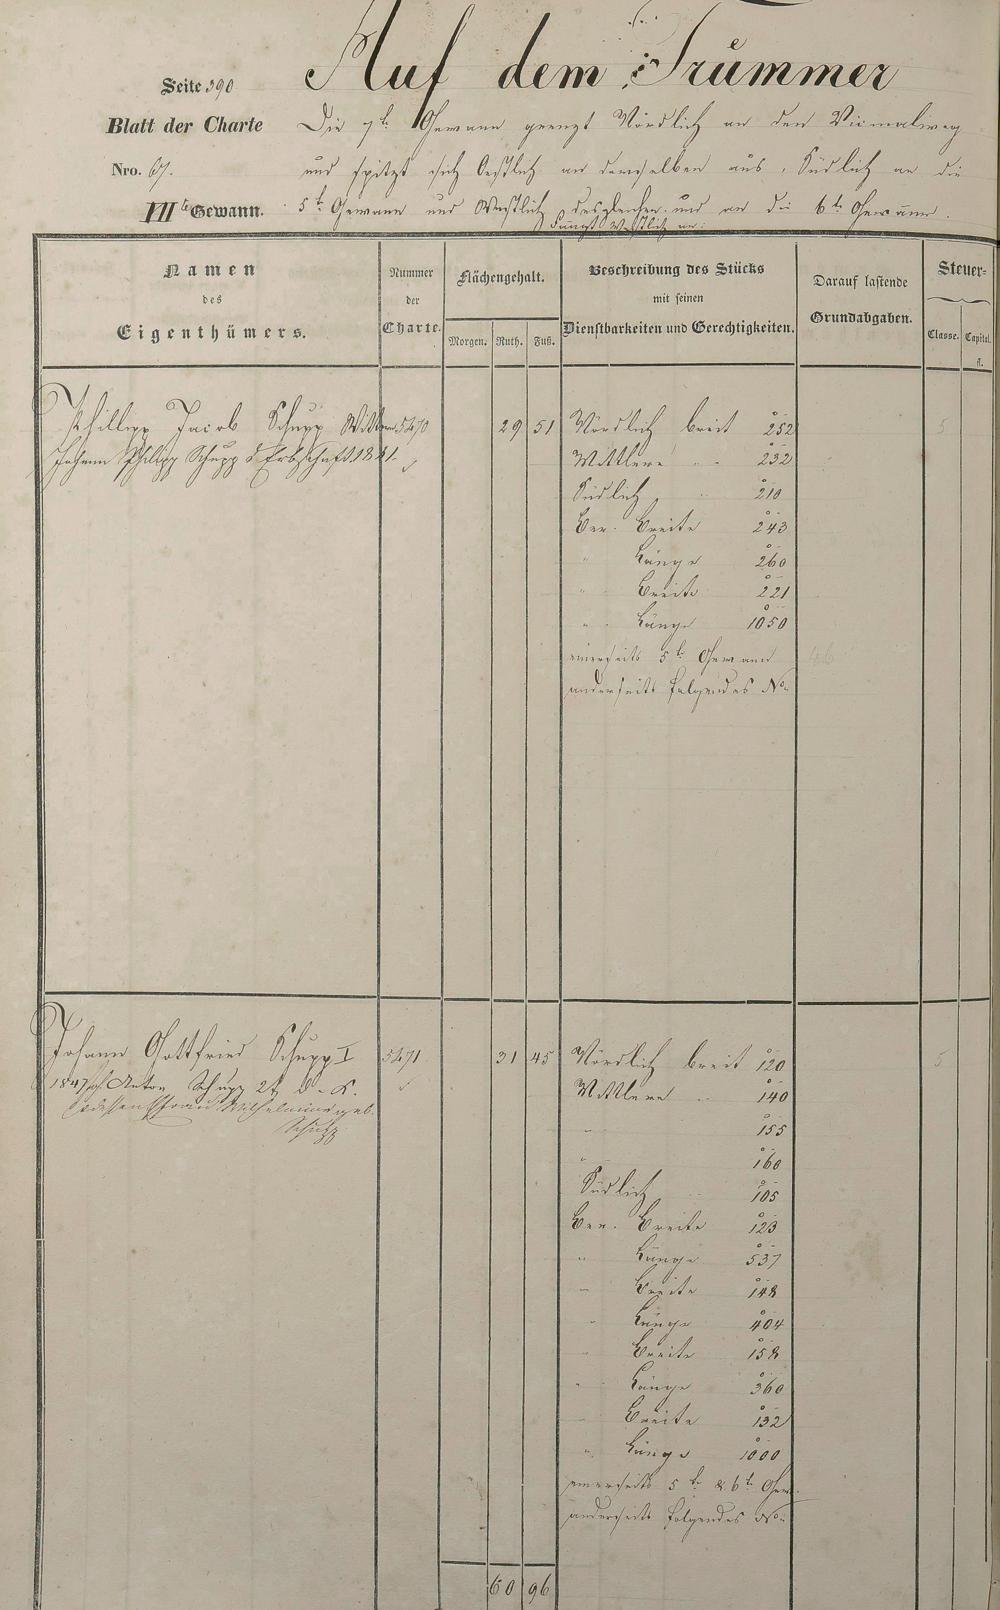 Auf dem Trümmer
Seite 390
Blatt der Charte
Nro. 67.
VII te Gewann.
Die 7te Gewann grenzt Nördlich an den Vicinalweg
und spitzt sich Oestlich an demselben aus, Südlich an die
5te Gewann und Westlich desgleichen und an die 6te Gewann.
Fängt Westlich an:
Namen
des
Eigenthümers.
Nummer
der
Charte.
Flächengehalt.
Morgen. Ruth. Fuß.
Beschreibung des Stücks
mit seinen
Dienstbarkeiten und Gerechtigkeiten.
Darauf lastende
Grundabgaben.
Steuer-
Classe. Capital.
fl.
Phillipp Jacob Schupp Wittwe 5470 29 51 Nördlich breit 252 5
Johann Philipp Schupp Erbschaft 1841. Mittlere " 232
Südlich " 210
Ber. Breite 243
" Länge 260
" Breite 221
" Länge 1050
einerseits 5te Gewann
anderseits folgendes No
Johann Gottfried Schupp I 5471 31 45 Nördlich breit 120 5
1847 Anton Schupp 2t Mittlere " 140
dessen Frau Wilhelmine geb. " 155
Schupp
" 160
Südlich " 105
Ber. Breite 123
" Länge 537
" Breite 148
" Länge 404
" Breite 158
" Länge 360
Breite 132
" Länge 1000
einerseits 5te & 6te Gew.
anderseits folgendes No
60 96